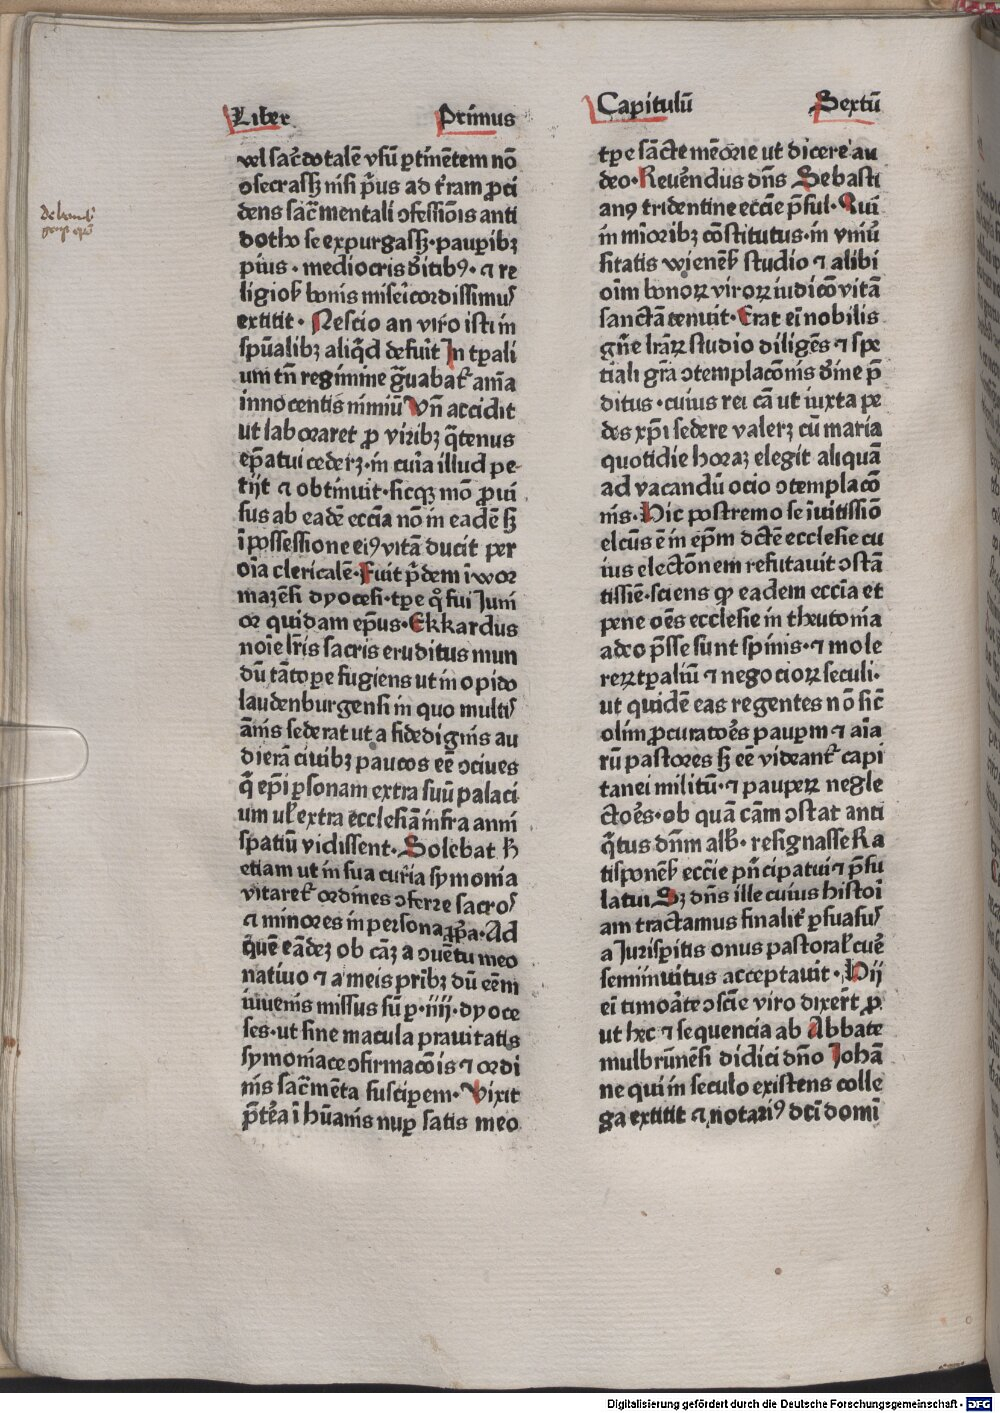 Liber Primus
vel sac̄dotalē vsū ꝑtinētem nō
ↄsecrasſꝫ nisi p̄us ad tr̄am ꝓci
dens sac̄mentali ↄfessiōis anti
dotho se expurgasſꝫ· pauꝑibꝫ
pius· mediocris dītibꝰ· ⁊ re
ligiosꝭ bonis miseīcordissimuſ
extitit· Nescio an viro isti in
spūalibꝫ aliq̄d defuit In tꝑali
um tn̄ regimine gͣuabat᷑ aīa
innocentis nimiū Vn̄ accidit
ut laboraret ꝓ viribꝫ q̄tenus
ep̄atui cederꝫ· in curia illud pe-
tijt ⁊ obtinuit· sicqꝫ mō ꝓui
sus ab eadē eccīa nō in eadē sꝫ
ī possessione eiꝰ vitā ducit per
oīa clericalē· Fuit p̄dem ī wor
mazēsi dyocesi· tꝑe qͦ fui Juni
or quidam ep̄us· Ekkardus
noīe lr̄is sacris eruditus mun
dū tātoꝑe fugiens ut in opido
laudenburgensi in quo multiſ
ānis sederat ut a fidedignis au
dierā civibꝫ paucos eē ↄciues
q̄ ep̄i ꝑsonam extra suū palaci
um ul̓ extra ecclesiā infra anni
spatiū vidissent· Solebat h̄
etiam ut in sua curia symonia
vitaret᷑ ordines ↄferre sacroſ
⁊ minores in persona ꝓp̄a· Ad
quē eādeꝫ ob cāꝫ a ↄuētu meo
natiuo ⁊ a meis pribꝫ dū eēm
iuuenis missus sū ꝑ· iiij· dyoce
ses· ut sine macula prauitatis
symoniace ↄfirmacōis ⁊ ordi
nis sac̄mēta susciꝑem· Vixit
p̄tēa ī hūanis nuꝑ satis meo
Capitulū Sextū
tꝑe sācte memōrie ut dicere au
deo· Reuēndus dn̄s Sebasti
anꝰ tridentine eccīe p̄sul· Qui
in mīoribꝫ cōstitutus· in vniuͣ
sitatis wienēsꝭ studio ⁊ alibi
oīm bonoꝝ viroꝝ iudicō vitā
sanctā tenuit· Erat eī nobilis
gn̄e lr̄aꝝ studio diligēs ⁊ spe
tiali gr̄a ↄtemplacōnis dīne p̄
ditus· cuius rei cā ut iuxta pe
des xp̄i sedere valerꝫ cū maria
quotidie horaꝫ elegit aliquā
ad vacandū ocio ↄtemplacō
nis· Hic postremo se īuitissiō
elcūs ē in ep̄m dctē ecclesie cu
ius electōnem refutauit ↄstā
tissīe· sciens ꝙ eadem eccīa et
pene oēs ecclesie in theutonia
adeo p̄sse sunt spinis· ⁊ mole
reꝝ tꝑaliū ⁊ negocioꝝ seculi·
ut quidē eas regentes nō sic̄
olim ꝓcuratoēs pauꝑm ⁊ aīa
rū pastores sꝫ eē videant᷑ capi
tanei militū· ⁊ paupeꝝ negle
ctoēs· ob quā cām ↄstat anti
q̄tus dn̄m alb̄· resignasse Ra
tisponēsꝭ eccīe pn̄cipatui ⁊ p̄su
latui Sꝫ dn̄s ille cuius histoī
am tractamus finalit᷑ ꝑsuasuſ
a Jurisꝑitis onus pastoral̓ cuē
seminuitus acceptauit· Hij
eī timoāte ↄscīe viro dixer̄t ꝓ
ut hec ⁊ sequencia ab Abbate
mulbrūnēsi didici dn̄o Johā
ne qui in seculo existens colle
ga extitit ⁊ notariꝰ dcī domī
Digitalisierung gefördert durch die Deutsche Forschungsgemeinschaft - DFG